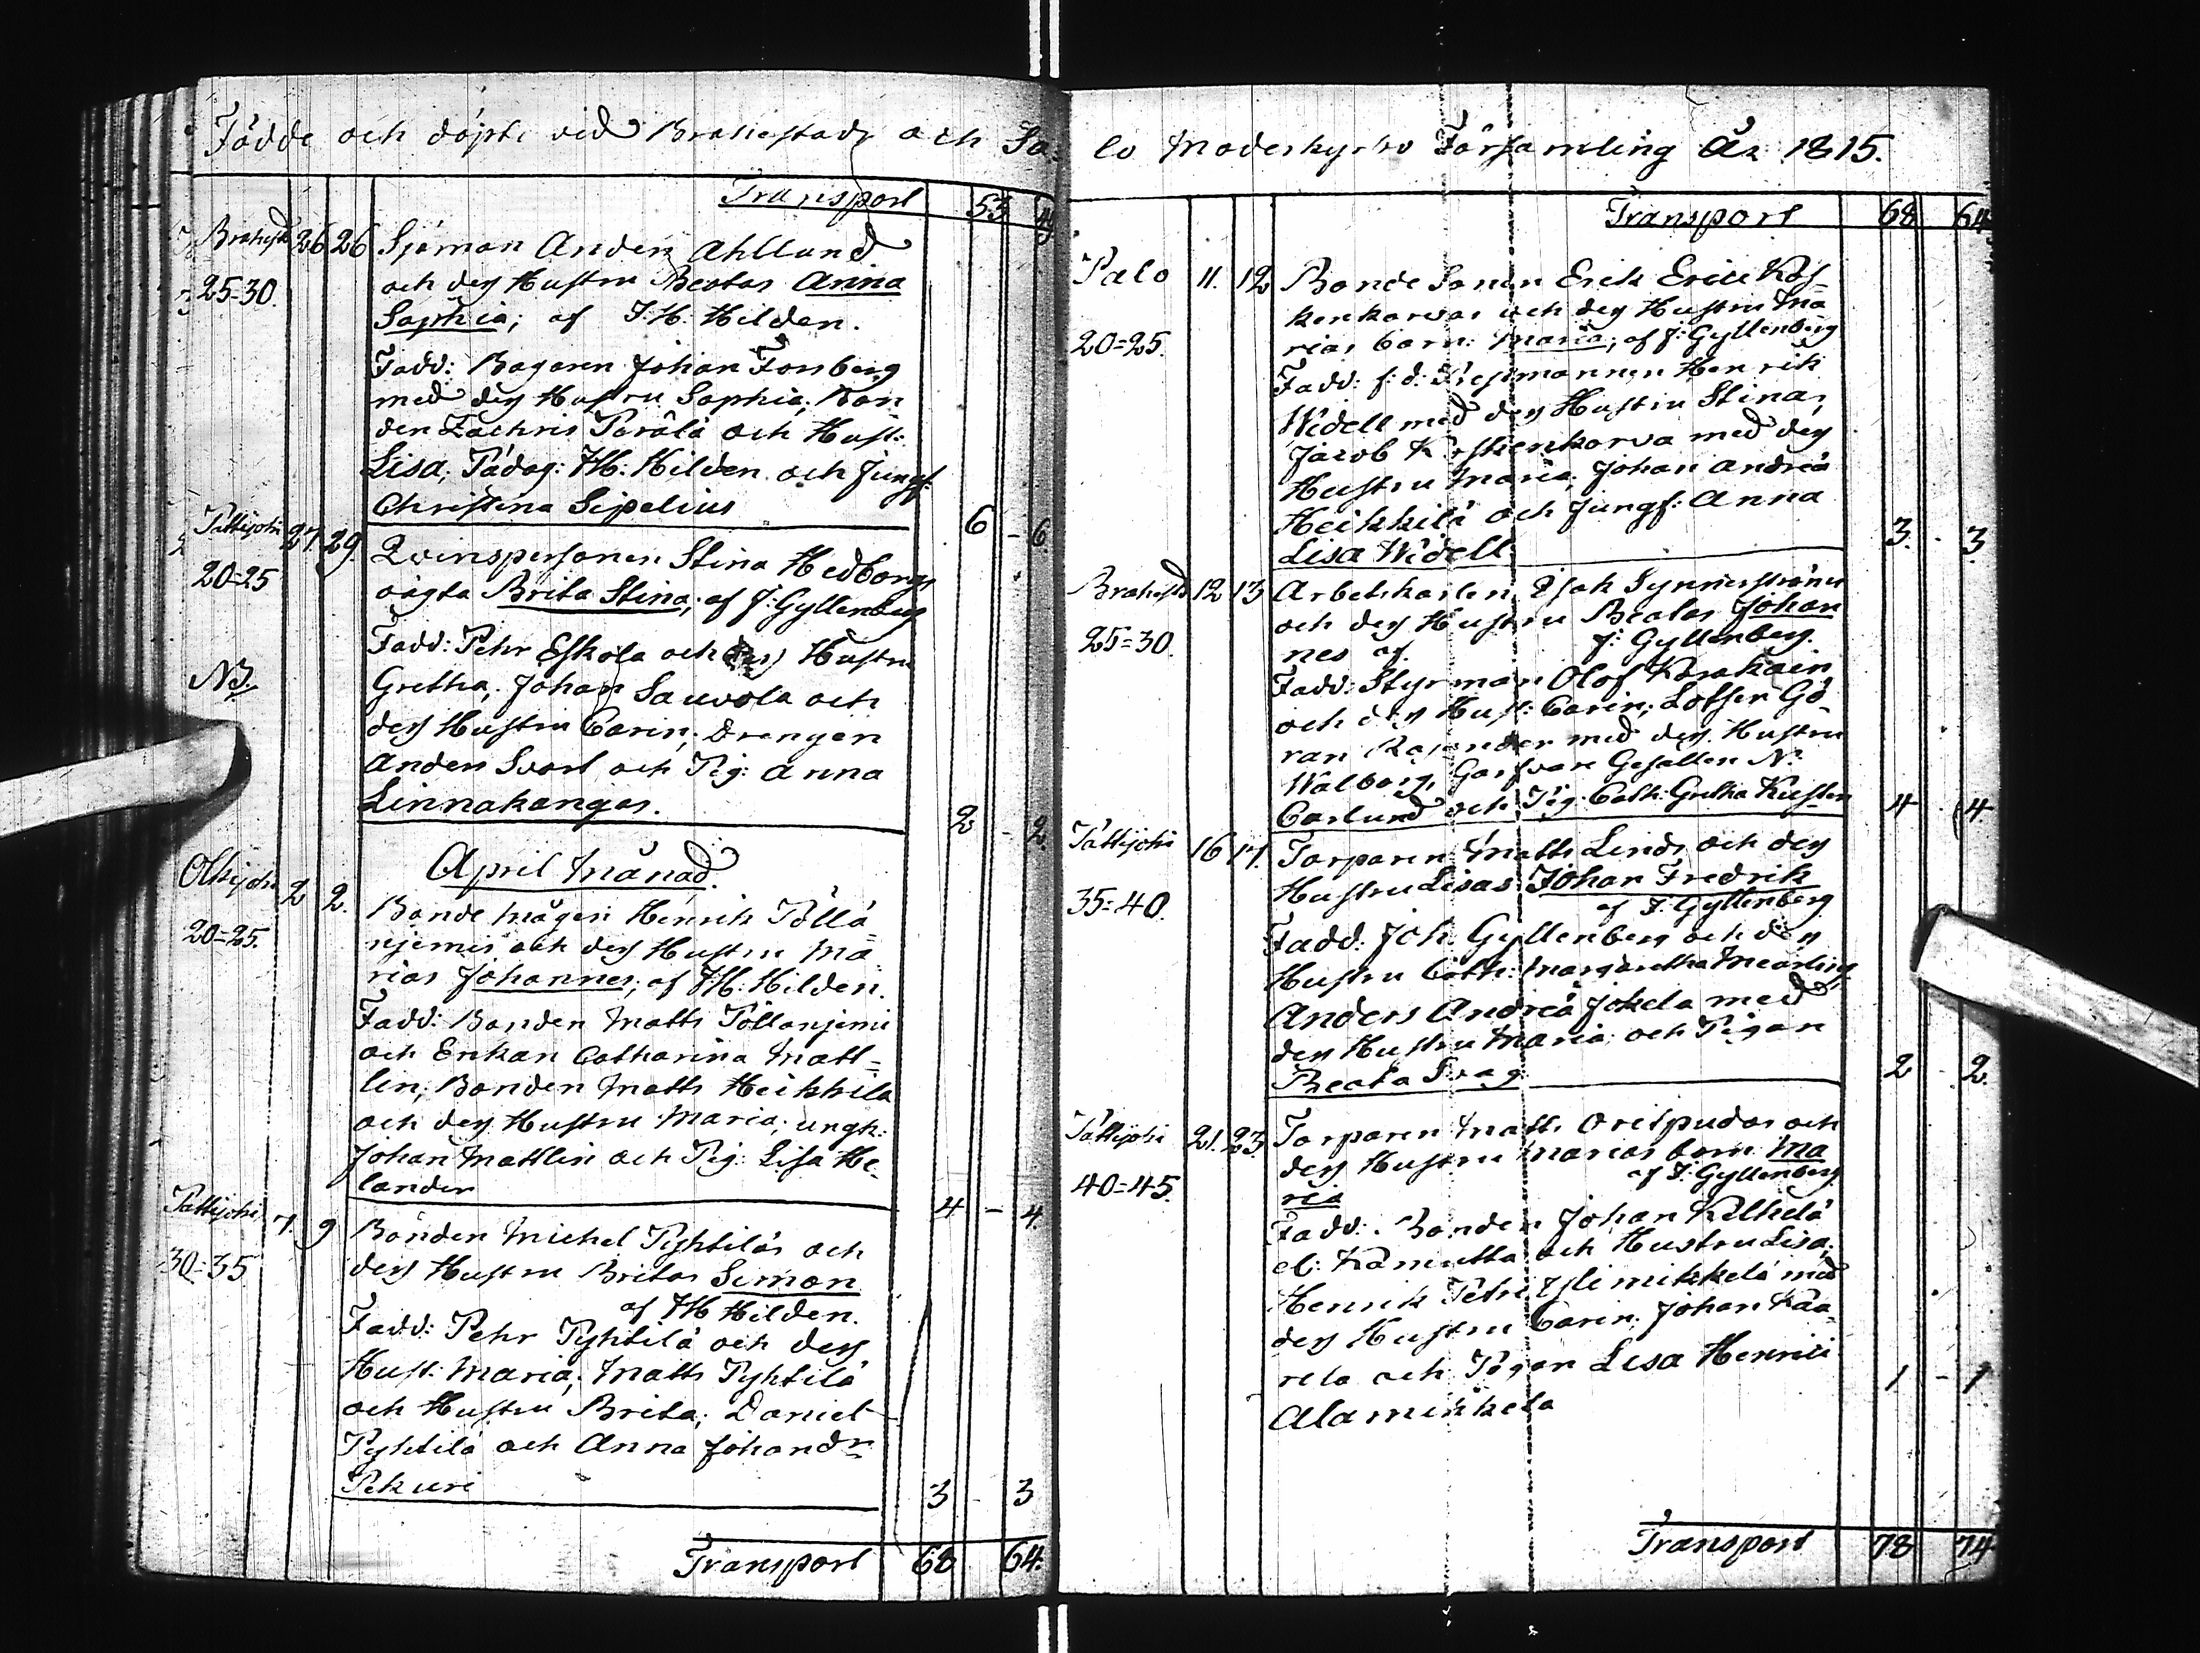 Födde och döpte vid Brahestads och Sa-
Transport 53 49
Brahest: 26 26 Sjöman Anders Ahllund
25=30. och dess Hustru Beatas Anna
Sophia; af J. H. Hilden.
Fadd: Bagaren Johan Forsberg
med dess Hustru Sophia; Bon
den Zachris Parola och Hust:
Lisa; Pädag: J.H. Hilden och Jungf:
Christina Sipelius 6 - 6.
Pattijoki 27 29. Qvinspersonen Stina Hedborgs
20=25 oägta Brita Stina; af J: Gyllenberg
Fadd: Pehr Eskola och dess Hustru
NB. Gretha; Johan Sauvola och
dess Hustru Carin; Drengen
Anders Svart och Pig: Anna
Linnakangas. 2 - 2
April Månad.
Olkijoki 2 2. Bonde Mågen Henrik Pöllä-
20=25. njemis och dess Hustru Ma
rias Johannes; af J.H. Hilden.
Fadd: Bonden Matts Pöllänjemi
och Enkan Catharina Matt=
lin; Bonden Matts Heikkilä
och dess Hustru Maria; ungk:
Johan Mattlin och Pig: Lisa He-
lander 4 - 4.
Pattijoki 7. 9 Bonden Michel Pyhtiläs och
30=35 dess Hustru Britas Simon
af J H Hilden.
Fadd: Pehr Pyhtilä och dess
Hust: Maria; Matts Pyhtilä
och Hustru Brita; Daniel
Pyhtilä och Anna Johansdr
Pekuri 3 - 3
Transport 68 64.
lo Moderkyrko Församling År 1815.
Transport 68 64
Palo 11. 12 Bonde Sonen Erik Erici Kos-
kenkorvas och dess Hustru Ma
20=25. rias barn: Maria; af J: Gyllenberg
Fadd: f: d: Henrik
Widell med dess Hustru Stina;
Jacob Koskenkorva med dess
Hustru Maria; Johan Andreæ
Heikkilä och Jungf: Anna
Lisa Widell. 3. - 3
Brahestd 12 13 Arbetskarlen Esak Synnerströms
och dess Hustru Beatas Johan
25=30. nes af J: Gyllenberg.
Fadd: Styrman Olof
och dess Hust: Carin; Lotsen Gö-
ran med dess Hustru
Walborg; Garfvare Gesällen N:
Carlund och Pig: Cath: Gretha 4 - 4
Pattijoki 16 17. Torparen Matts Linds och dess
Hustru Lisas Johan Fredrik
35=40. af J: Gyllenberg
Fadd: Joh: Gyllenberg och dess
Hustru Cath: Margaretha
Anders Andreæ Jokela med
dess Hustru Maria och Pigan
Beata Svag 2 - 2.
Pattijoki 21. 23. Torparen Matts Orispudas och
dess Hustru Marias barn Ma
40=45. ria af J: Gyllenberg
Fadd: Bonden Johan
och Hustru Lisa;
Henrik Petri Ylimikkelä med
dess Hustru Carin; Johan Kaa-
rela och Pigan Lisa Henrici
Alamikkela 1 - 1
Transport 78 74